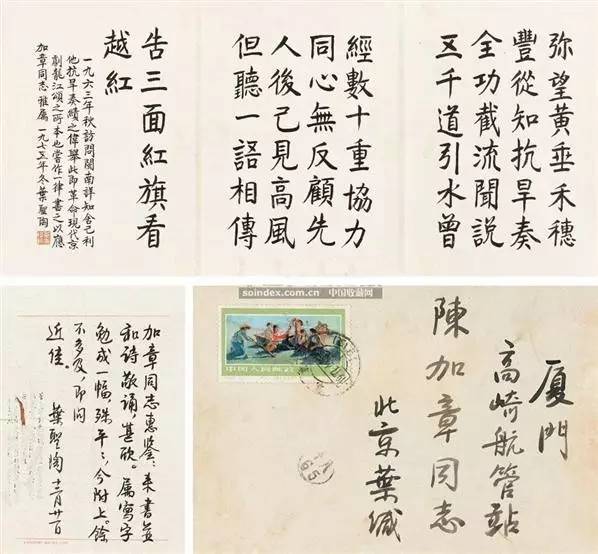 弥望黄垂禾穗
豐從知抗旱奏
全功截流聞説
五千道引水曾
經數十重協力
同心無反顧先
人後己見高風
但聽一語相傳
告三面紅旗看
越紅
一九六三年秋訪問閩南詳知舍己利
他抗旱奏績之偉舉此即革命現代京
劇龍江頌之所本也嘗作一律書之以應
加章同志雅屬 一九七五年冬葉聖陶
soindex.com.cn 中国收藏网
加章同志惠鑒：来書並
和詩敬誦，甚欣。属寫字
勉成一幅殊平平，今附上。餘
不多及，即問
近佳。
葉聖陶 十二月廿一日
厦門
高崎航管站
陳加章同志
北京葉緘
中国人民邮政